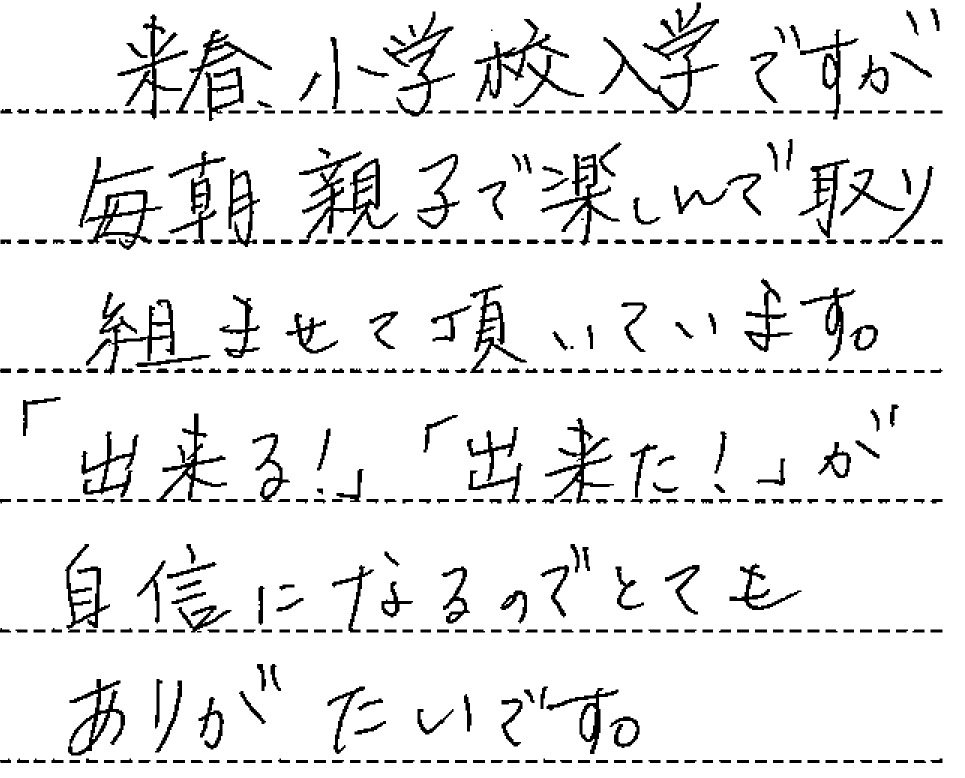 来春、小学校入学ですが
毎朝親子で楽しんで取り
組ませて頂いています。
「出来る!」「出来た!」が
自信になるのでとても
ありがたいです。